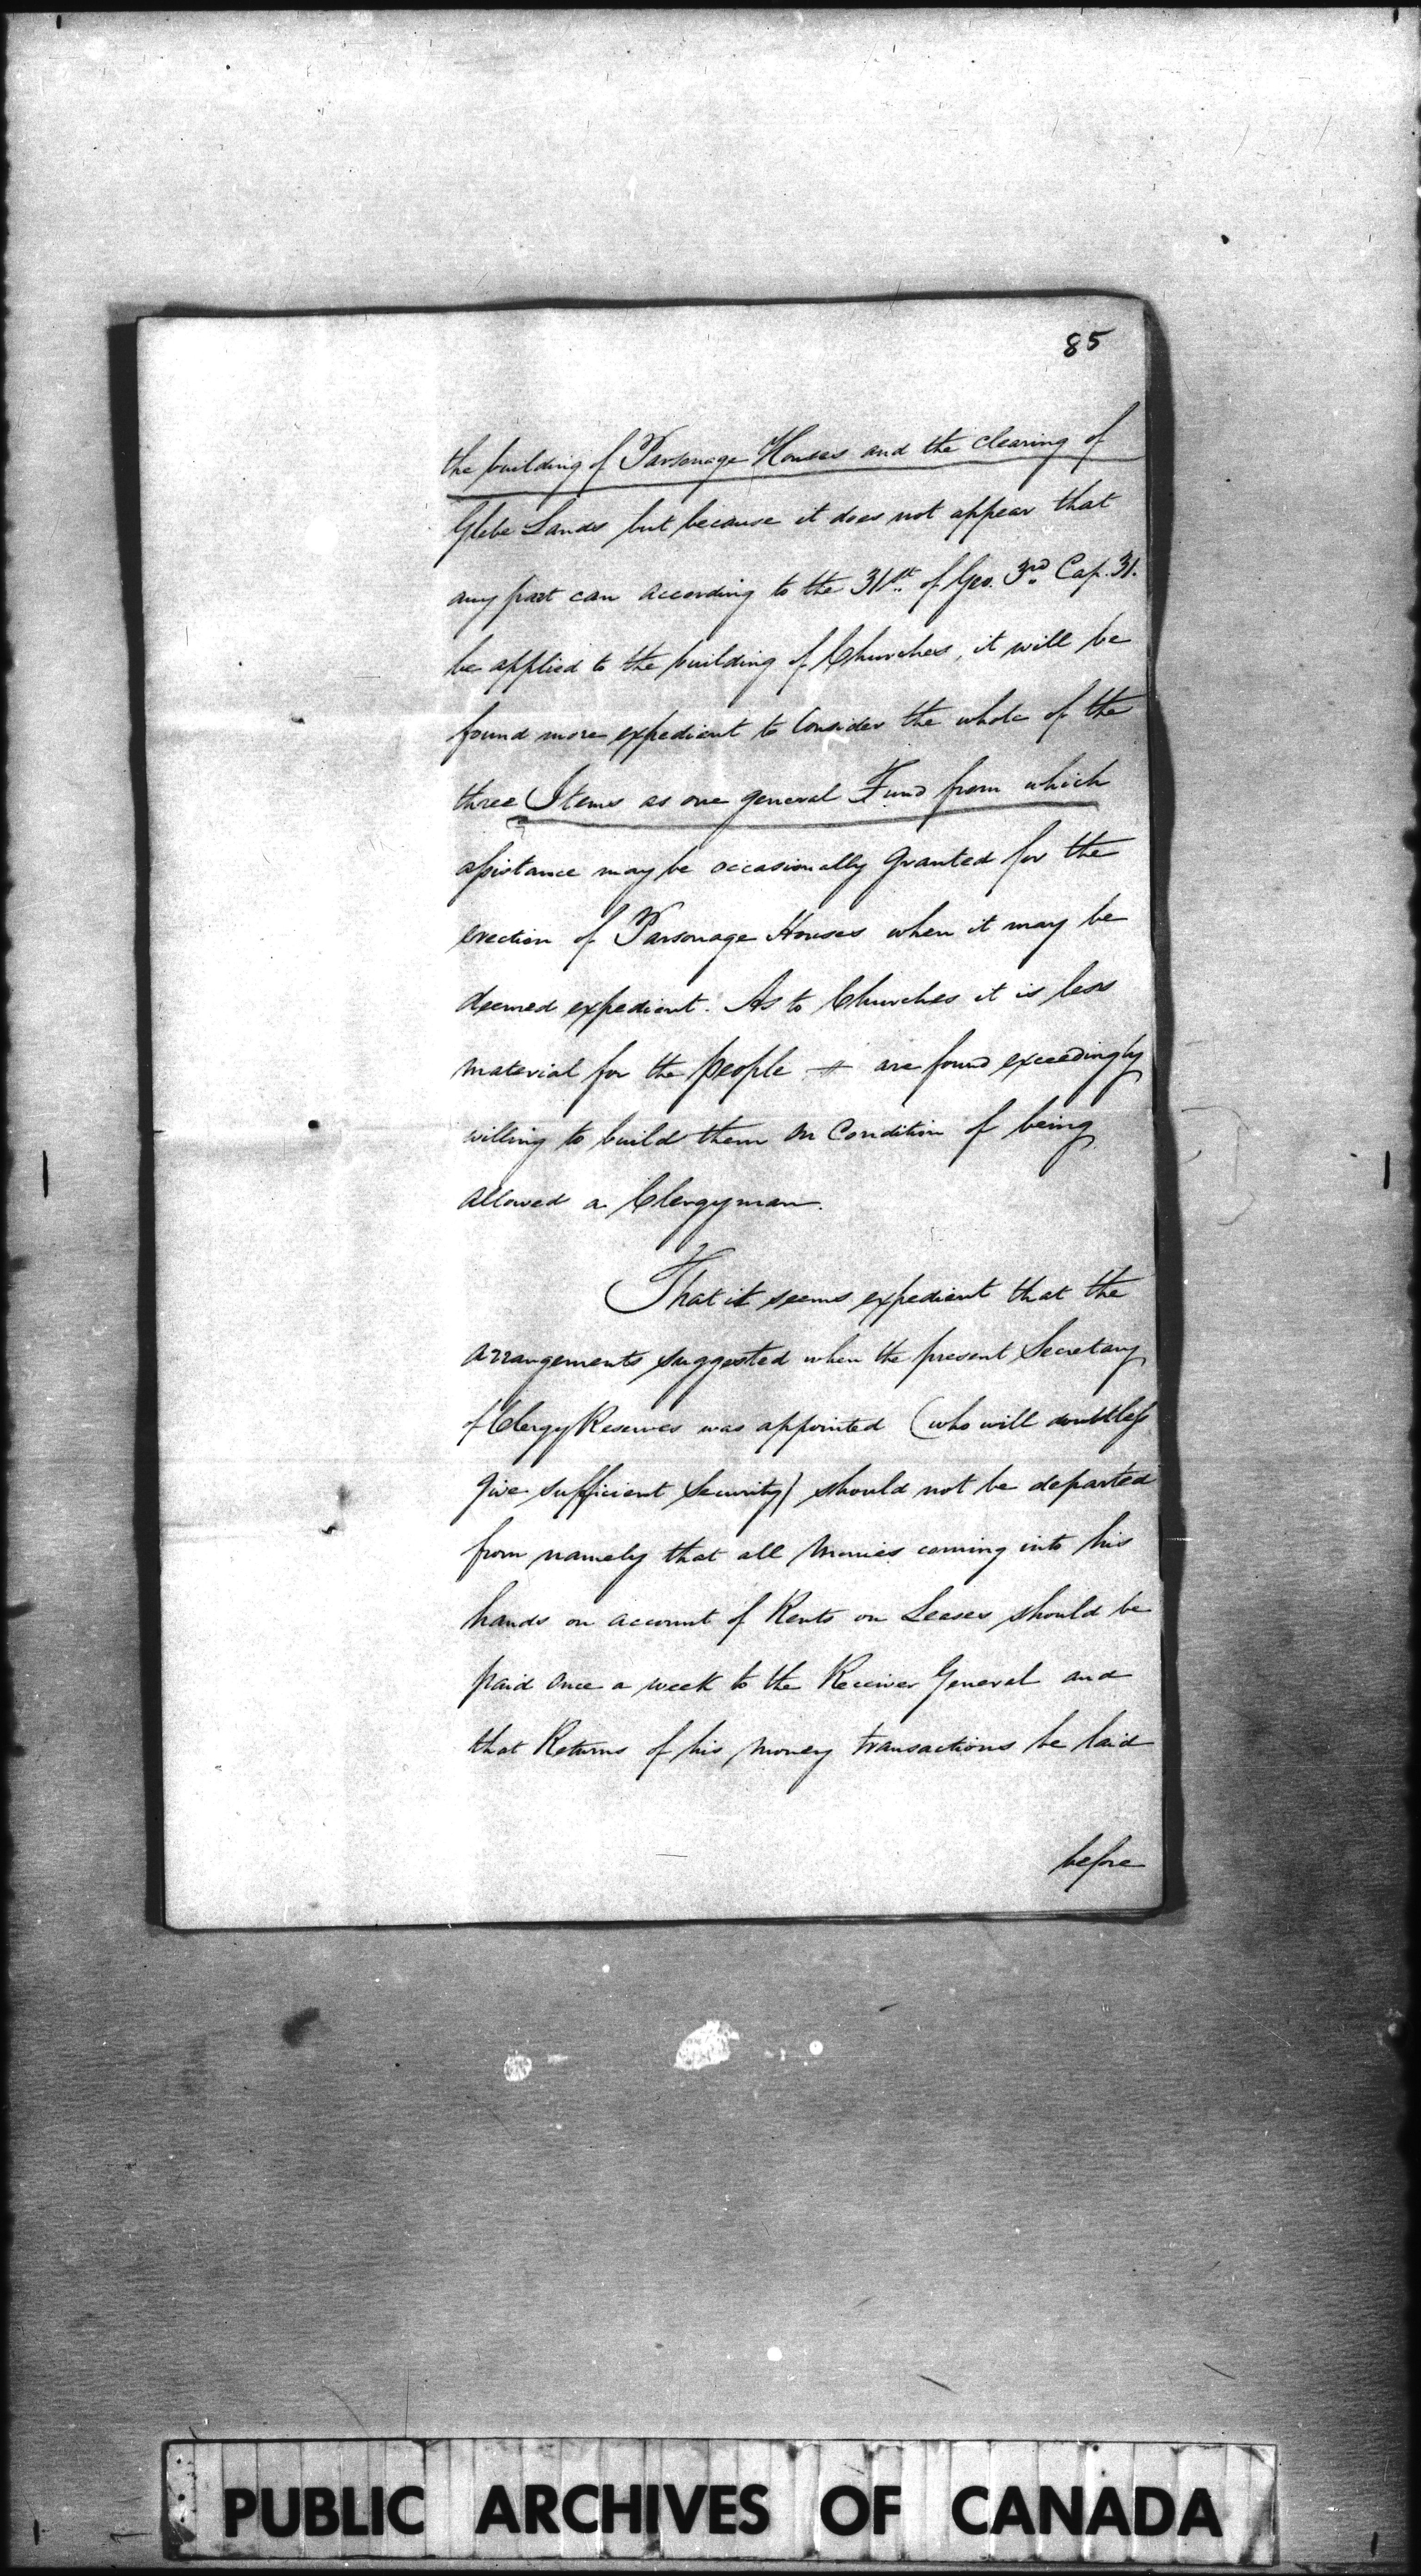 85
the building of Parsonage Houses and the clearing of
Glebe Lands but because it does not appear that
any part can according to the 31st. of Geo. 3rd. Cap. 31.
be applied to the building of Churches, it will be
found more expedient to Consider the whole of the
three Items as one general Fund from which
assistance may be occasionally granted for the
erection of Parsonage Houses when it may be
deemed expedient. As to Churches it is less
material for the people are found exceedingly
willing to build them on Condition of being
allowed a Clergyman.
That it seems expedient that the
arrangements suggested when the present Secretary
of Clergy Reserves was appointed (who will doubtless
give sufficient Security) should not be departed
from namely that all Monies coming into his
hands on account of Rents on Leases should be
paid once a week to the Receiver General and
that Returns of his Money transactions be laid
before
PUBLIC ARCHIVES OF CANADA